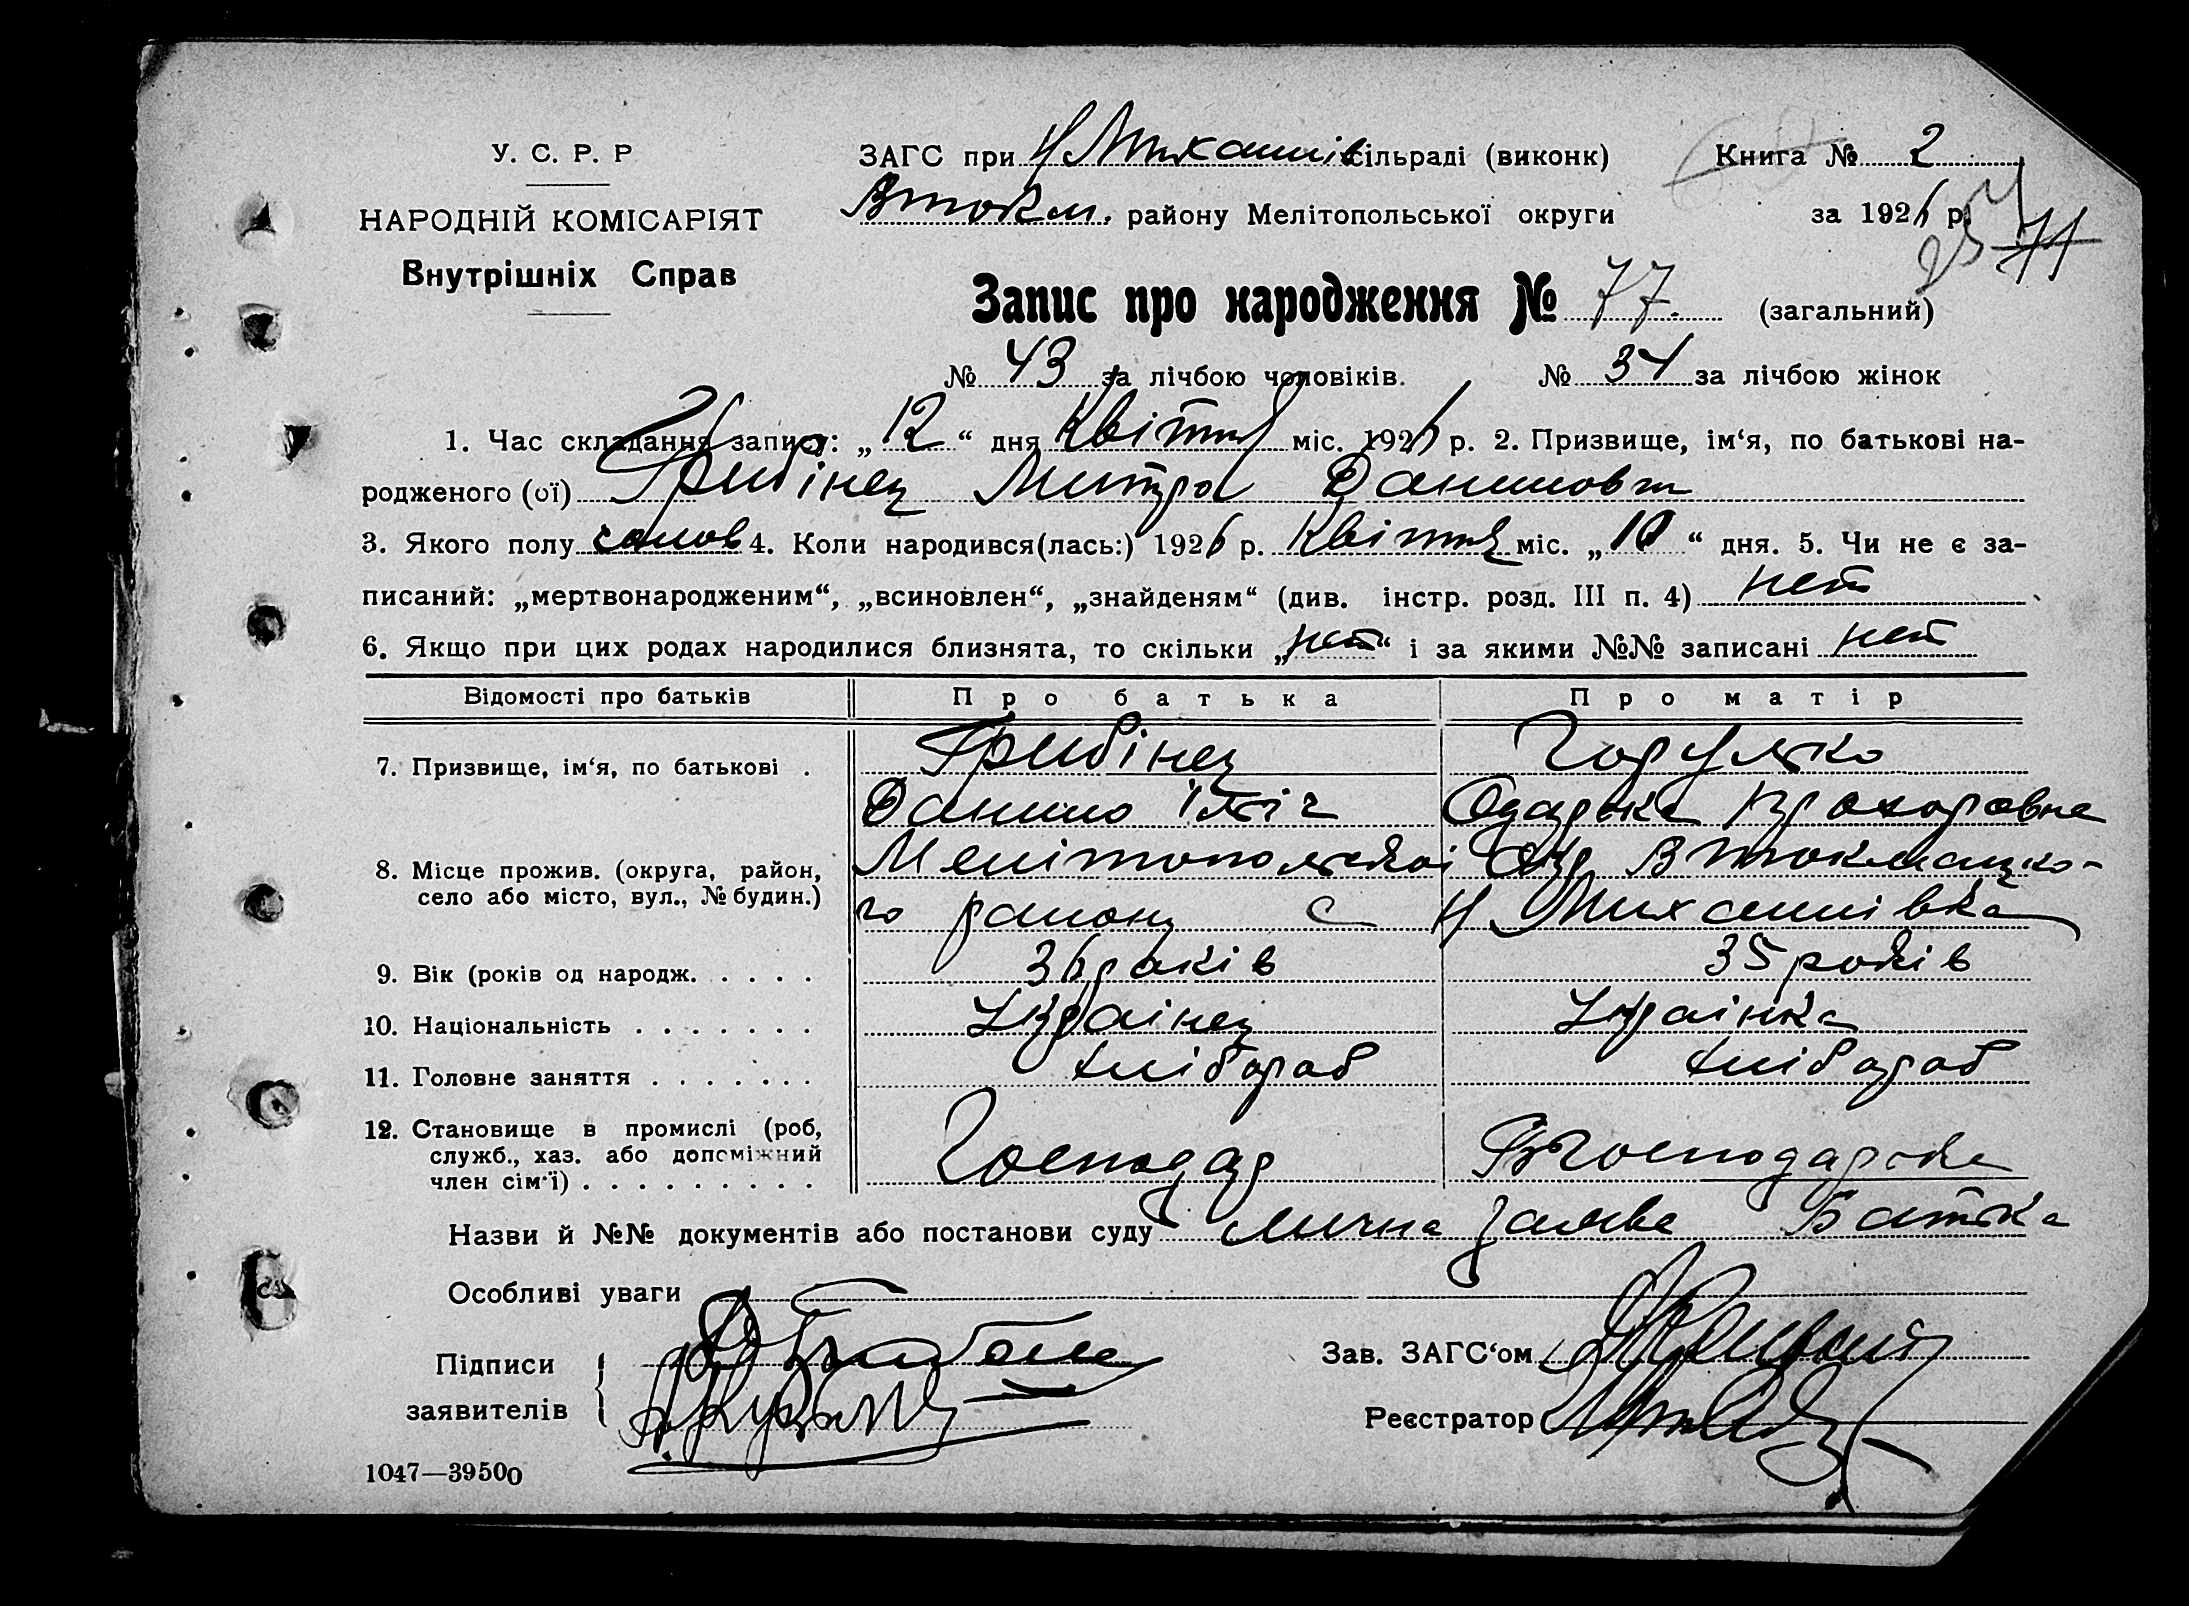 У. С. Р. Р
НАРОДНІЙ КОМІСАРІЯТ
Внутрішніх Справ
ЗАГС при Н Михайлів сільраді (виконк)
Книга № 2
Втокм. району Мелітопольської округи
за 1926 р.
71
Запис про народження № 77. (загальний)
№ 43 за лічбою чоловіків.
№ 34 за лічбою жінок
1. Час складання запису: „12“ дня Квітня міс. 1926 р. 2. Призвище, ім‘я, по батькові на-
родженого (ої) Грибінец Митро Данилович
3. Якого полу чолов 4. Коли народився(лась:) 1926 р. Квітня міс. „10“ дня. 5. Чи не є за-
писаний: „мертвонародженим“, „всиновлен“, „знайденям“ (див. інстр. розд. III п. 4) нет
6. Якщо при цих родах народилися близнята, то скільки „нет“ і за якими №№ записані нет
Відомості про батьків Про батька Про матір
7. Призвище, ім‘я, по батькові . Грибінец Горулько
Данило Ілліч Одарька Прохоровна
8. Місце прожив. (округа, район,
село або місто, вул., № будин.)
Мелітопольскої Окр Втокмацко-
го району с Н Михайлівка
9. Вік (років од народж. . . . . 36 років 35 років
10. Національність . . . . . . . Українец Українка
11. Головне заняття . . . . . . . хлібороб хлібороб
12. Становище в промислі (роб,
служб., хаз. або допоміжний
член сім‘ї) . . . . . . . . .
Господар Господарска
Назви й №№ документів або постанови суду лична заява Батька
Особливі уваги
Підписи
заявителів
Зав. ЗАГС‘ом
Реєстратор
1047—39500